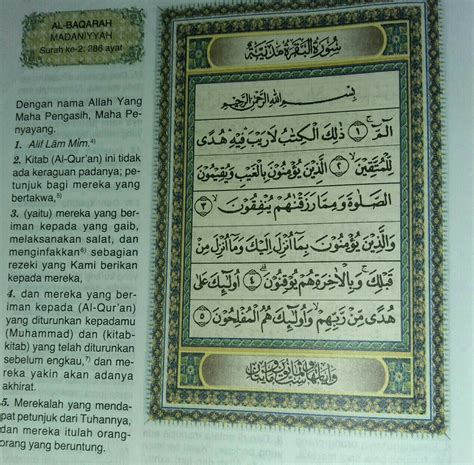 AL-BAQARAH
MADANIYYAH
Surah ke-2: 286 ayat
Dengan nama Allah Yang
Maha Pengasih, Maha Pe-
nyayang.
1. Alif Lām Mīm.4)
2. Kitab (Al-Qur'an) ini tidak
ada keraguan padanya; pe-
tunjuk bagi mereka yang
bertakwa,5)
3. (yaitu) mereka yang ber-
iman kepada yang gaib,
melaksanakan salat, dan
menginfakkan6) sebagian
rezeki yang Kami berikan
kepada mereka,
4. dan mereka yang ber-
iman kepada (Al-Qur'an)
yang diturunkan kepadamu
(Muhammad) dan (kitab-
kitab) yang telah diturunkan
sebelum engkau,7) dan me-
reka yakin akan adanya
akhirat.
5. Merekalah yang menda-
pat petunjuk dari Tuhannya,
dan mereka itulah orang-
orang yang beruntung.
سُورَةُ الْبَقَرَةِ مَدَنِيَّةٌ
بِسْمِ اللّٰهِ الرَّحْمٰنِ الرَّحِيْمِ
الۤمّۤ ۚ ١ ذٰلِكَ الْكِتٰبُ لَا رَيْبَ فِيْهِ هُدًى
لِّلْمُتَّقِيْنَۙ ٢ الَّذِيْنَ يُؤْمِنُوْنَ بِالْغَيْبِ وَيُقِيْمُوْنَ
الصَّلٰوةَ وَمِمَّا رَزَقْنٰهُمْ يُنْفِقُوْنَۙ ٣
وَالَّذِيْنَ يُؤْمِنُوْنَ بِمَآ اُنْزِلَ اِلَيْكَ وَمَآ اُنْزِلَ مِنْ
قَبْلِكَۚ وَبِالْاٰخِرَةِ هُمْ يُوْقِنُوْنَۗ ٤ اُولٰۤىِٕكَ عَلٰى
هُدًى مِّنْ رَّبِّهِمْۙ وَاُولٰۤىِٕكَ هُمُ الْمُفْلِحُوْنَ ٥